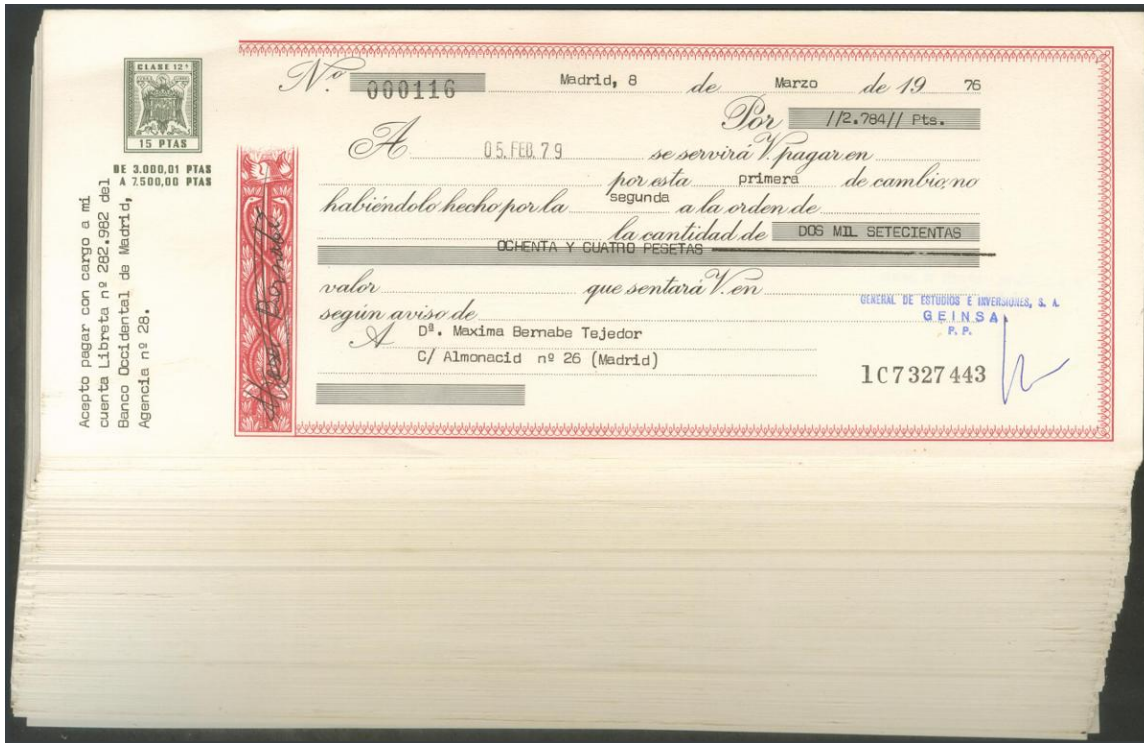 CLASE 12ª
15 PTAS
DE 3.000,01 PTAS
A 7.500,00 PTAS
Acepto pagar con cargo a mi
cuenta Libreta nº 282.982 del
Banco Occidental de Madrid,
Agencia nº 28.
Nº 000116 Madrid, 8 de Marzo de 19 76
Por //2.784// Pts.
A 05. FEB. 79 se servirá V. pagar en
por esta primera de cambio, no
habiéndolo hecho por la segunda a la orden de
la cantidad de DOS MIL SETECIENTAS
OCHENTA Y CUATRO PESETAS
valor que sentará V. en
según aviso de
GENERAL DE ESTUDIOS E INVERSIONES, S. A.
GEINSA
P. P.
A Dª. Maxima Bernabe Tejedor
C/ Almonacid nº 26 (Madrid)
1C7327443